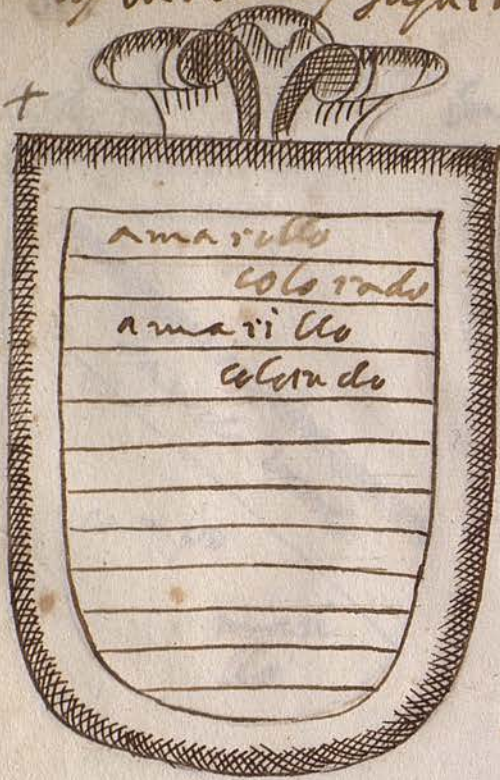 +
amarillo
colorado
amarillo
colorado